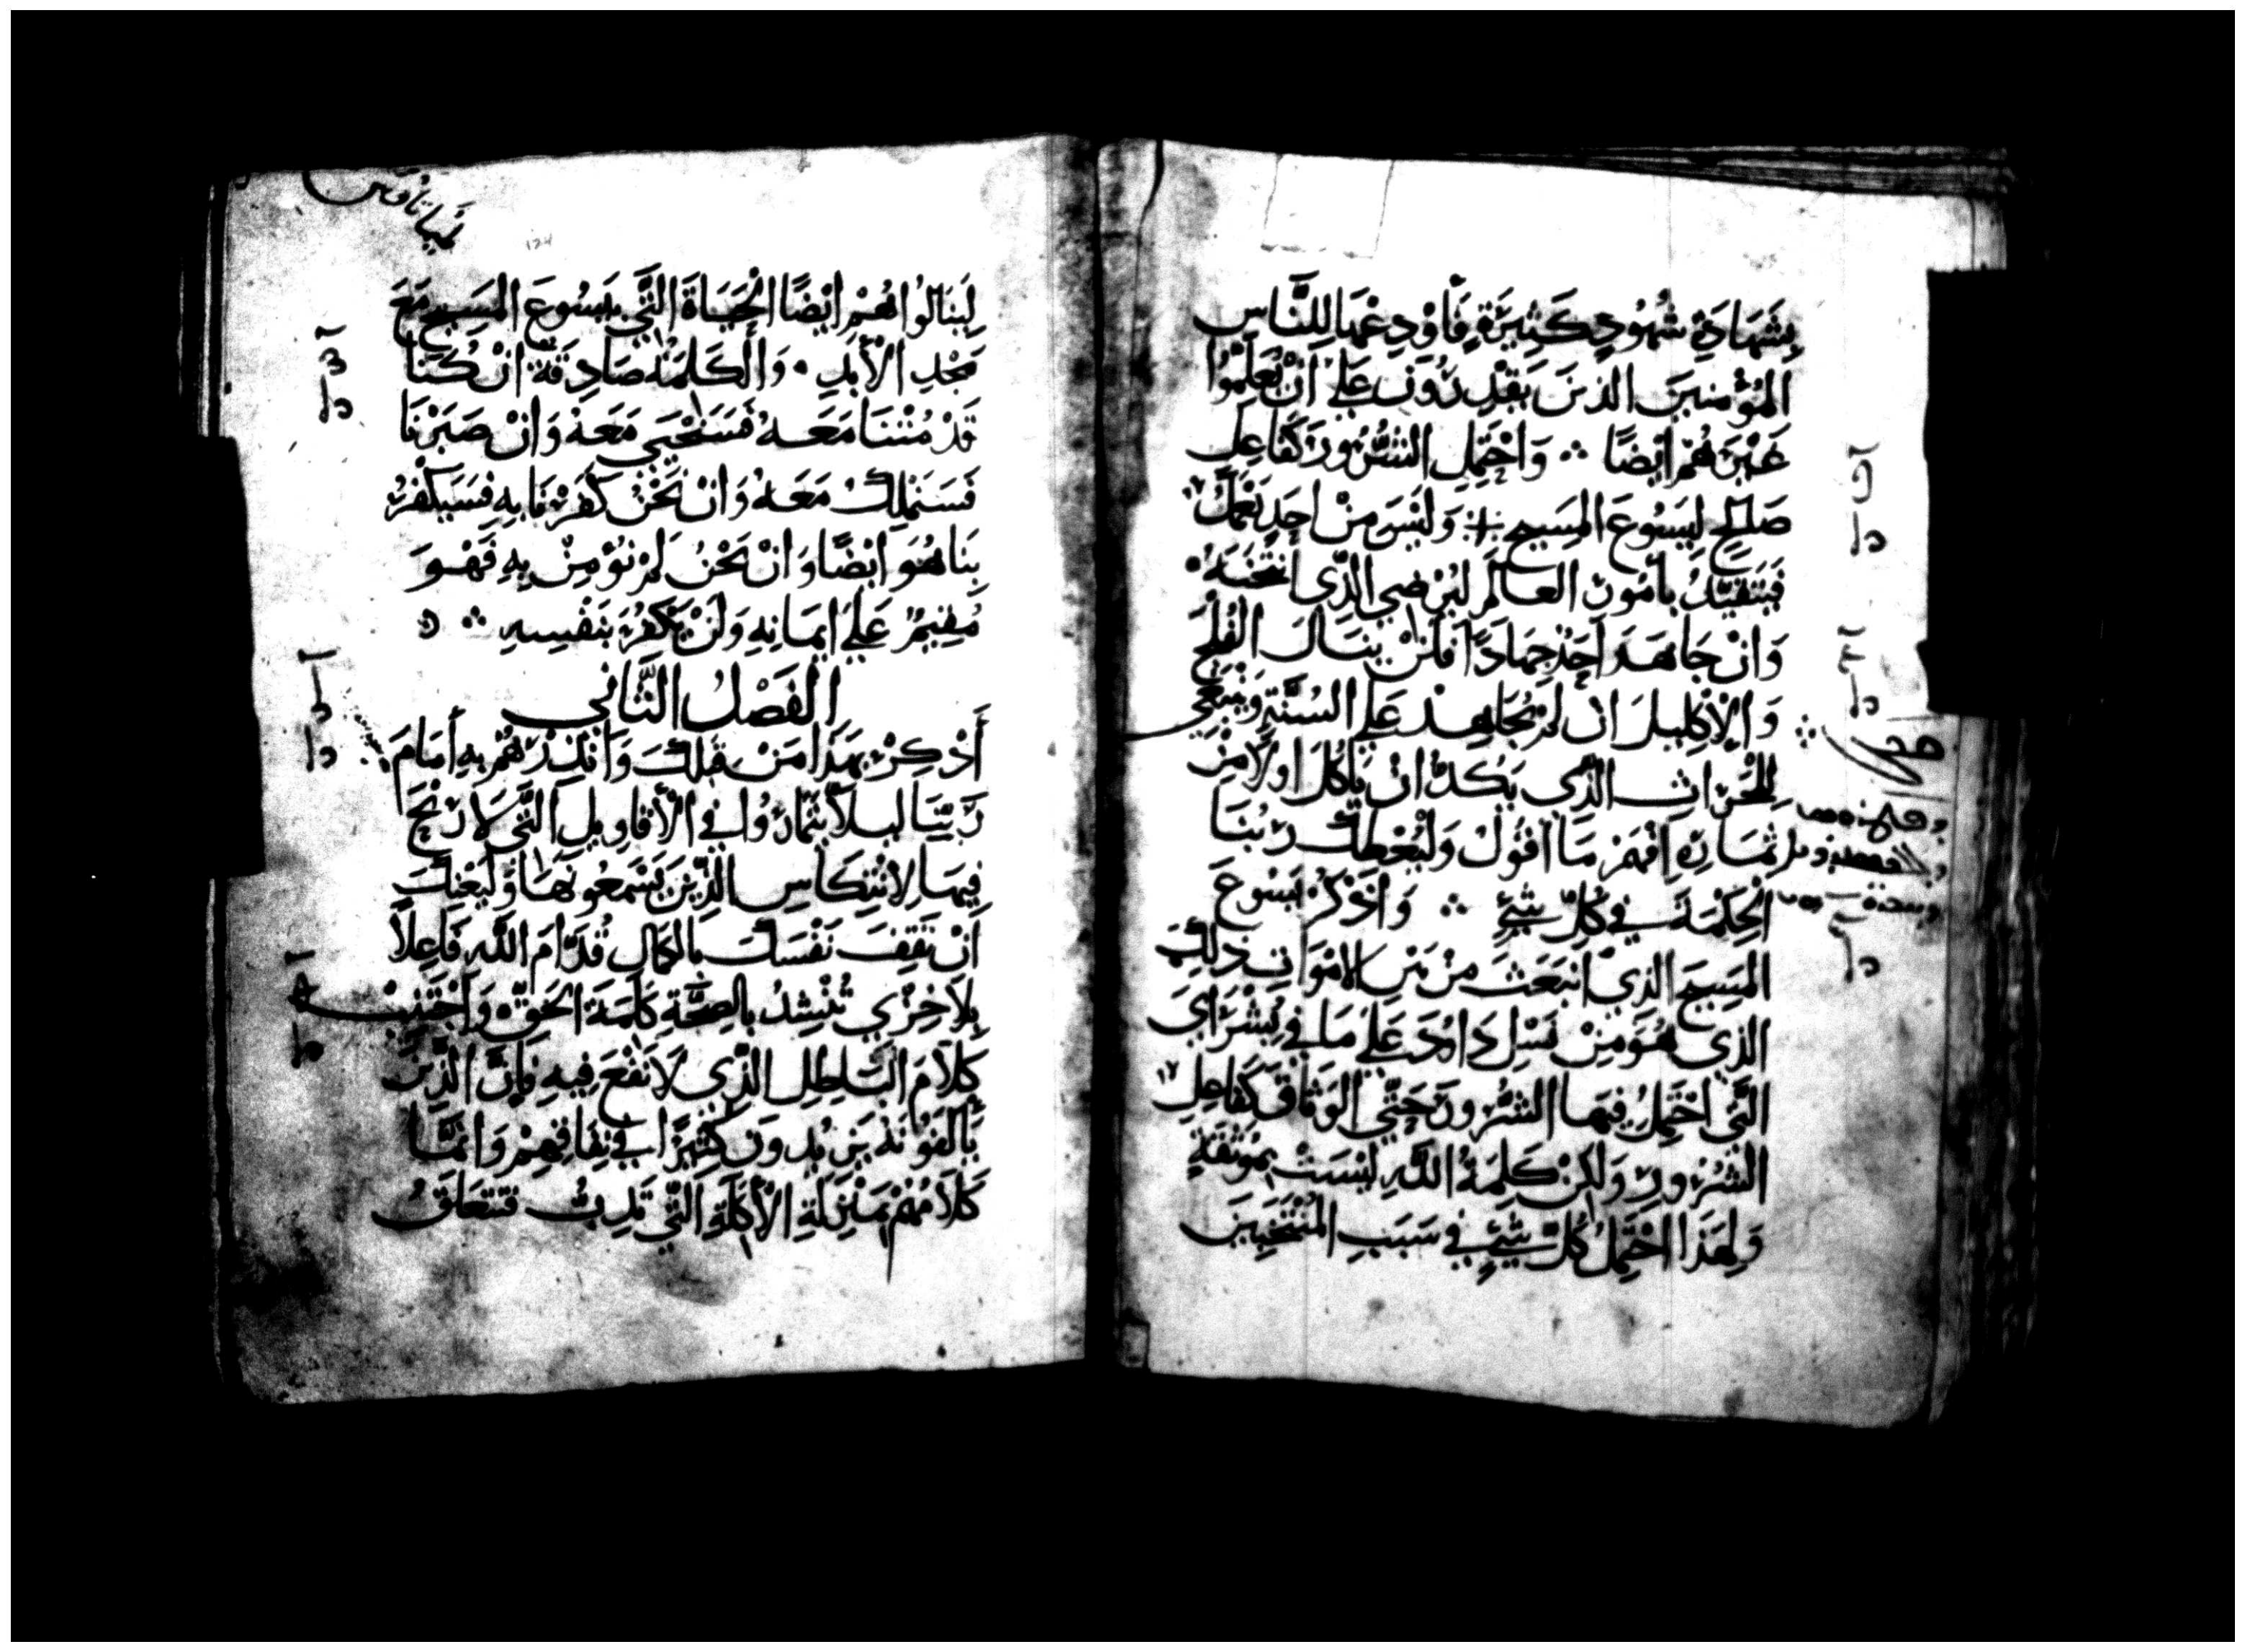 بِشَهَادَةِ شُهُودٍ كَثِيرَةٍ فَأَوْدِعْهَا لِلنَّاسِ
المُؤْمنِينَ الذينَ يَقْدِرُونَ عَلَى انْ يُعَلِّمُوا
غَيْرَهُمْ ايْضًا ܀ وَاحْتَمِلِ الشُّرُورَ كَفَاعِلِ
صَالحٍ لِيَسُوعَ المَسِيحِ ܀ وَلَيْسَ مِنْ احَدٍ يَعْمَلُ
فَيَتَقَيَّدُ بِأمُورِ العَالَمِ لِيُرْضِي الذِّى انْتَخَبَهُ
وَانْ جَاهَدَ احَدٌ جِهَادًا فَلَنْ يَنَالَ الفُلْجَ
وَالْاكْلِيلَ انْ لَمْ يُجَاهِدْ عَلَى السُنَّةِ وَيَنْبَغِي
لِلْحَرَّاثِ الذِّي يَكدُّ انْ يَاكُلَ اولًا مِنْ
ثِمَارِهِ افْهَمْ مَا اقُولُ وَلْيُعْطِكَ رَبُنَا
الْحِكْمَةَ فِي كُلِّ شَيْءٍ ܀ وَاذْكُرْ يَسُوعَ
المَسِيحَ الذِيِّ انْبَعَثَ مِنْ بَيْنِ الامْوَاتِ ذلِكَ
الذِي هُوَ مِنْ نَسْلِ دَاوُدَ عَلَى مَا فِي بُشْرَايَ
التَّى احْتَمِلُ فِيهَا الشُّرُورَ حَتَّى الوَثَاقَ كَفَاعِلِ
الشُرُورِ وَلَكِنْ كَلِمَةُ اللَّهِ لَيْسَتْ بِمُوثَقَةٍ
وَلِهَذَا احْتَمِلُ كُلَّ شَيْءٍ فِي سَبَبِ المُنْتَخَبِينَ
لِيَنَالُوا هُمْ ايْضًا الْحَيَاةَ التَّي بِيَسُوعَ المَسِيحِ مَعَ
مَجْدِ الْأَبَدِ ٠ وَالْكَلَمَةُ صَادِقَة انْ كُنَّا
قَدْ مُتْنَا مَعَهُ فَسَنَحْيَى مَعَهُ وَانْ صَبَرْنَا
فَسَنَمْلِكُ مَعَهُ وَانْ نَحْنُ كَفَرْنَا بِهِ فَسَيَكْفُرُ
بِنَا هُوَ ايْضًا وَانْ نَحْنُ لَمْ نُؤْمِنْ بِهِ فَهْوَ
مُقِيمٌ عَلَى ايمَانِهِ وَلَنْ يَكْفُرَ بِنَفْسِهِ ܀
الفَصْلُ الثَّانِي
أَذْكِرْ بِهَذَا مَنْ قِبَلِكَ وَانْذِرْهُمْ بِهِ أَمَامَ
رَبِّنَا لِيلَّا يَتَمَارُوا فِي الْأَقَاوِيلِ التَّى لَا رِبْحَ
فِيهَا لِانْتِكَاسِ الذِّينَ يَسْمَعُونَهَا وَلْيَعْنِكَ
انْ تَقِفَ نَفْسَكَ بِالكَمَالِ قُدَّامَ اللَّهِ فَاعِلًا
بِلَا خِزْيٍ تُنْشِدُ بِالصِّحَّةِ كَلَمَةَ الحَقِّ وَاجْتَنِبْ
كَلَامَ البَاطِلِ الذِّى لَا نَفْعَ فِيهِ فَإنَّ الذِّينَ
يَأْلَفُونَهُ يَزِيدُونَ كَثِيرًا فِي نِفَاقِهِمْ وَانَّمَا
كَلَامُهُمْ بِمَنْزِلَةِ الْأكِلَةِ التَّي تَدِبُّ فَتَتَعَلَّقُ